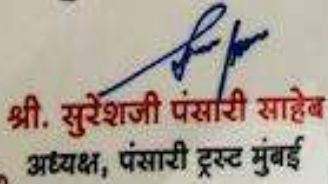 श्री. सुरेशजी पंसारी साहेब
अध्यक्ष, पंसारी ट्रस्ट मुंबई